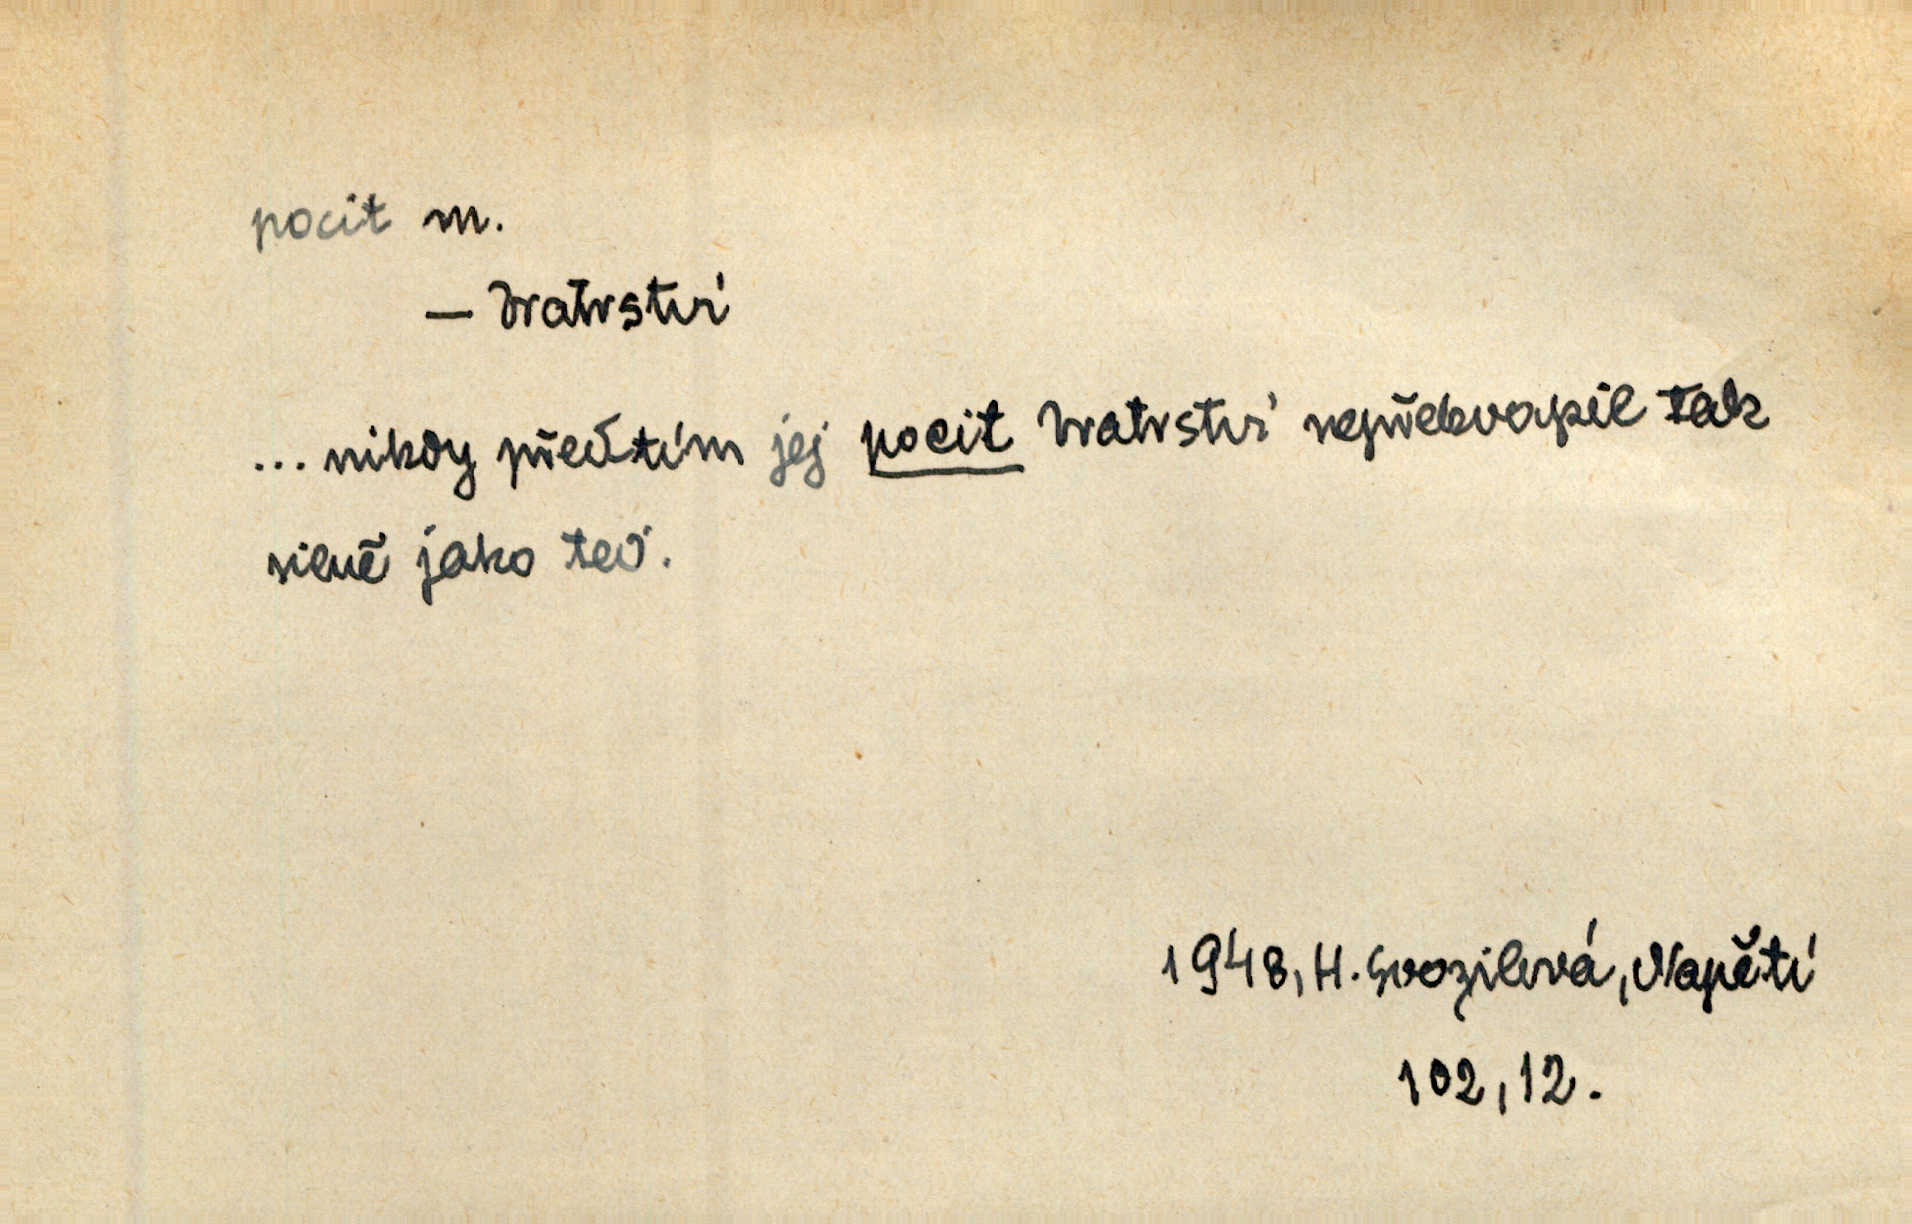 pocit m.
— bratrství
... nikdy předtím jej pocit bratrství nepřekvapil tak
silně jako teď.
1948, H. Svozilová, Napětí
102, 12.